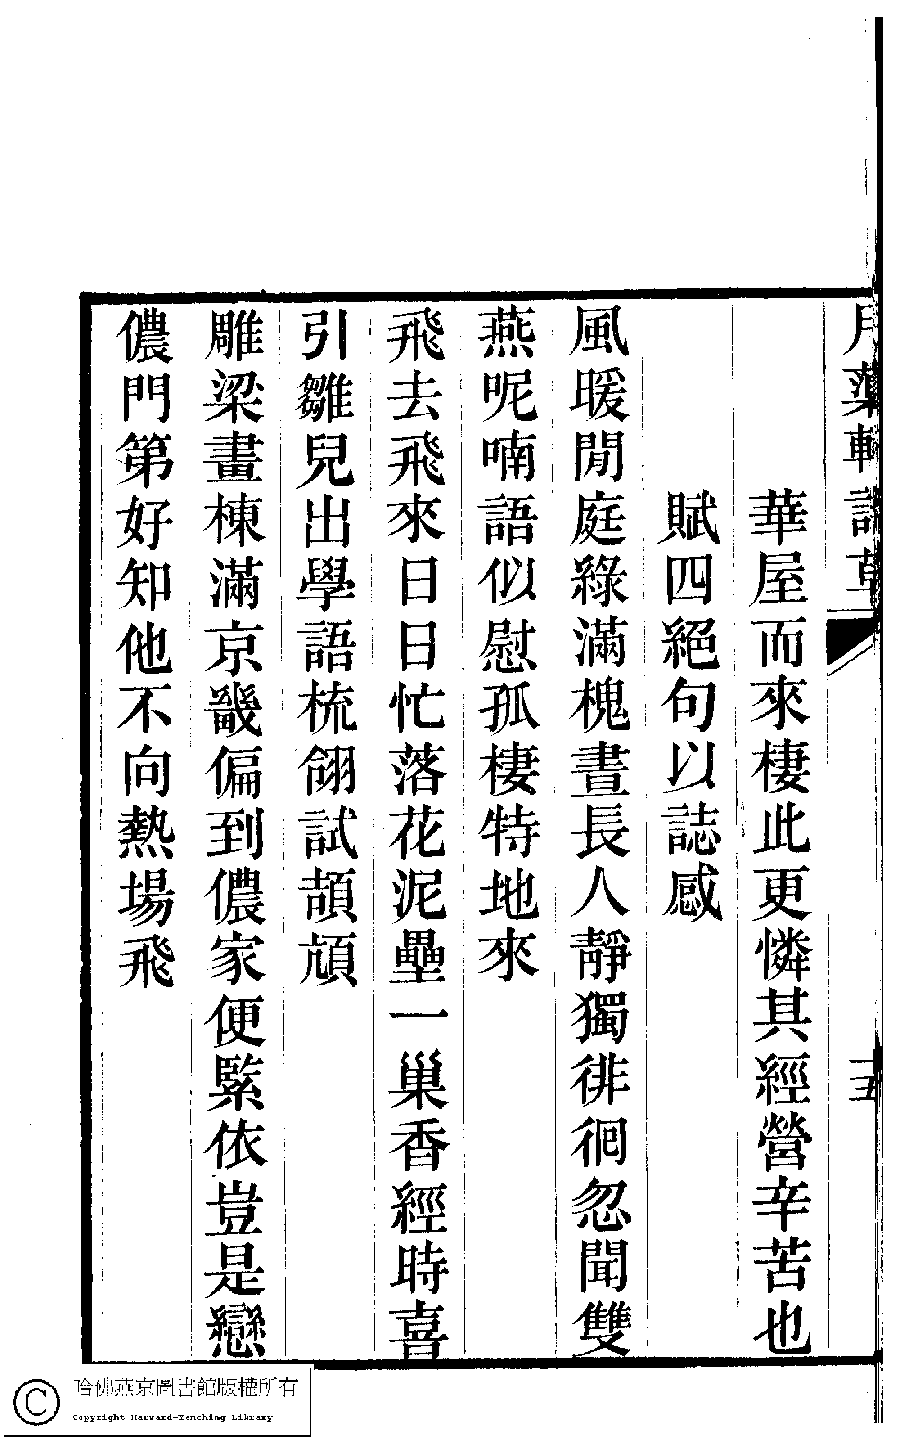 月蕖軒詩草
華屋而來棲此更憐其經營辛苦也
賦四絕句以誌感
風暖閒庭綠滿槐晝長人靜獨徘徊忽聞雙
燕呢喃語似慰孤棲特地來
飛去飛來日日忙落花泥壘一巢香經時喜
引雛兒出學語梳翎試頡頏
雕梁畫棟滿京畿偏到儂家便緊依豈是戀
儂門第好知他不向熱場飛
十五
哈佛燕京圖書館版權所有
Copyright Harvard-Yenching Library